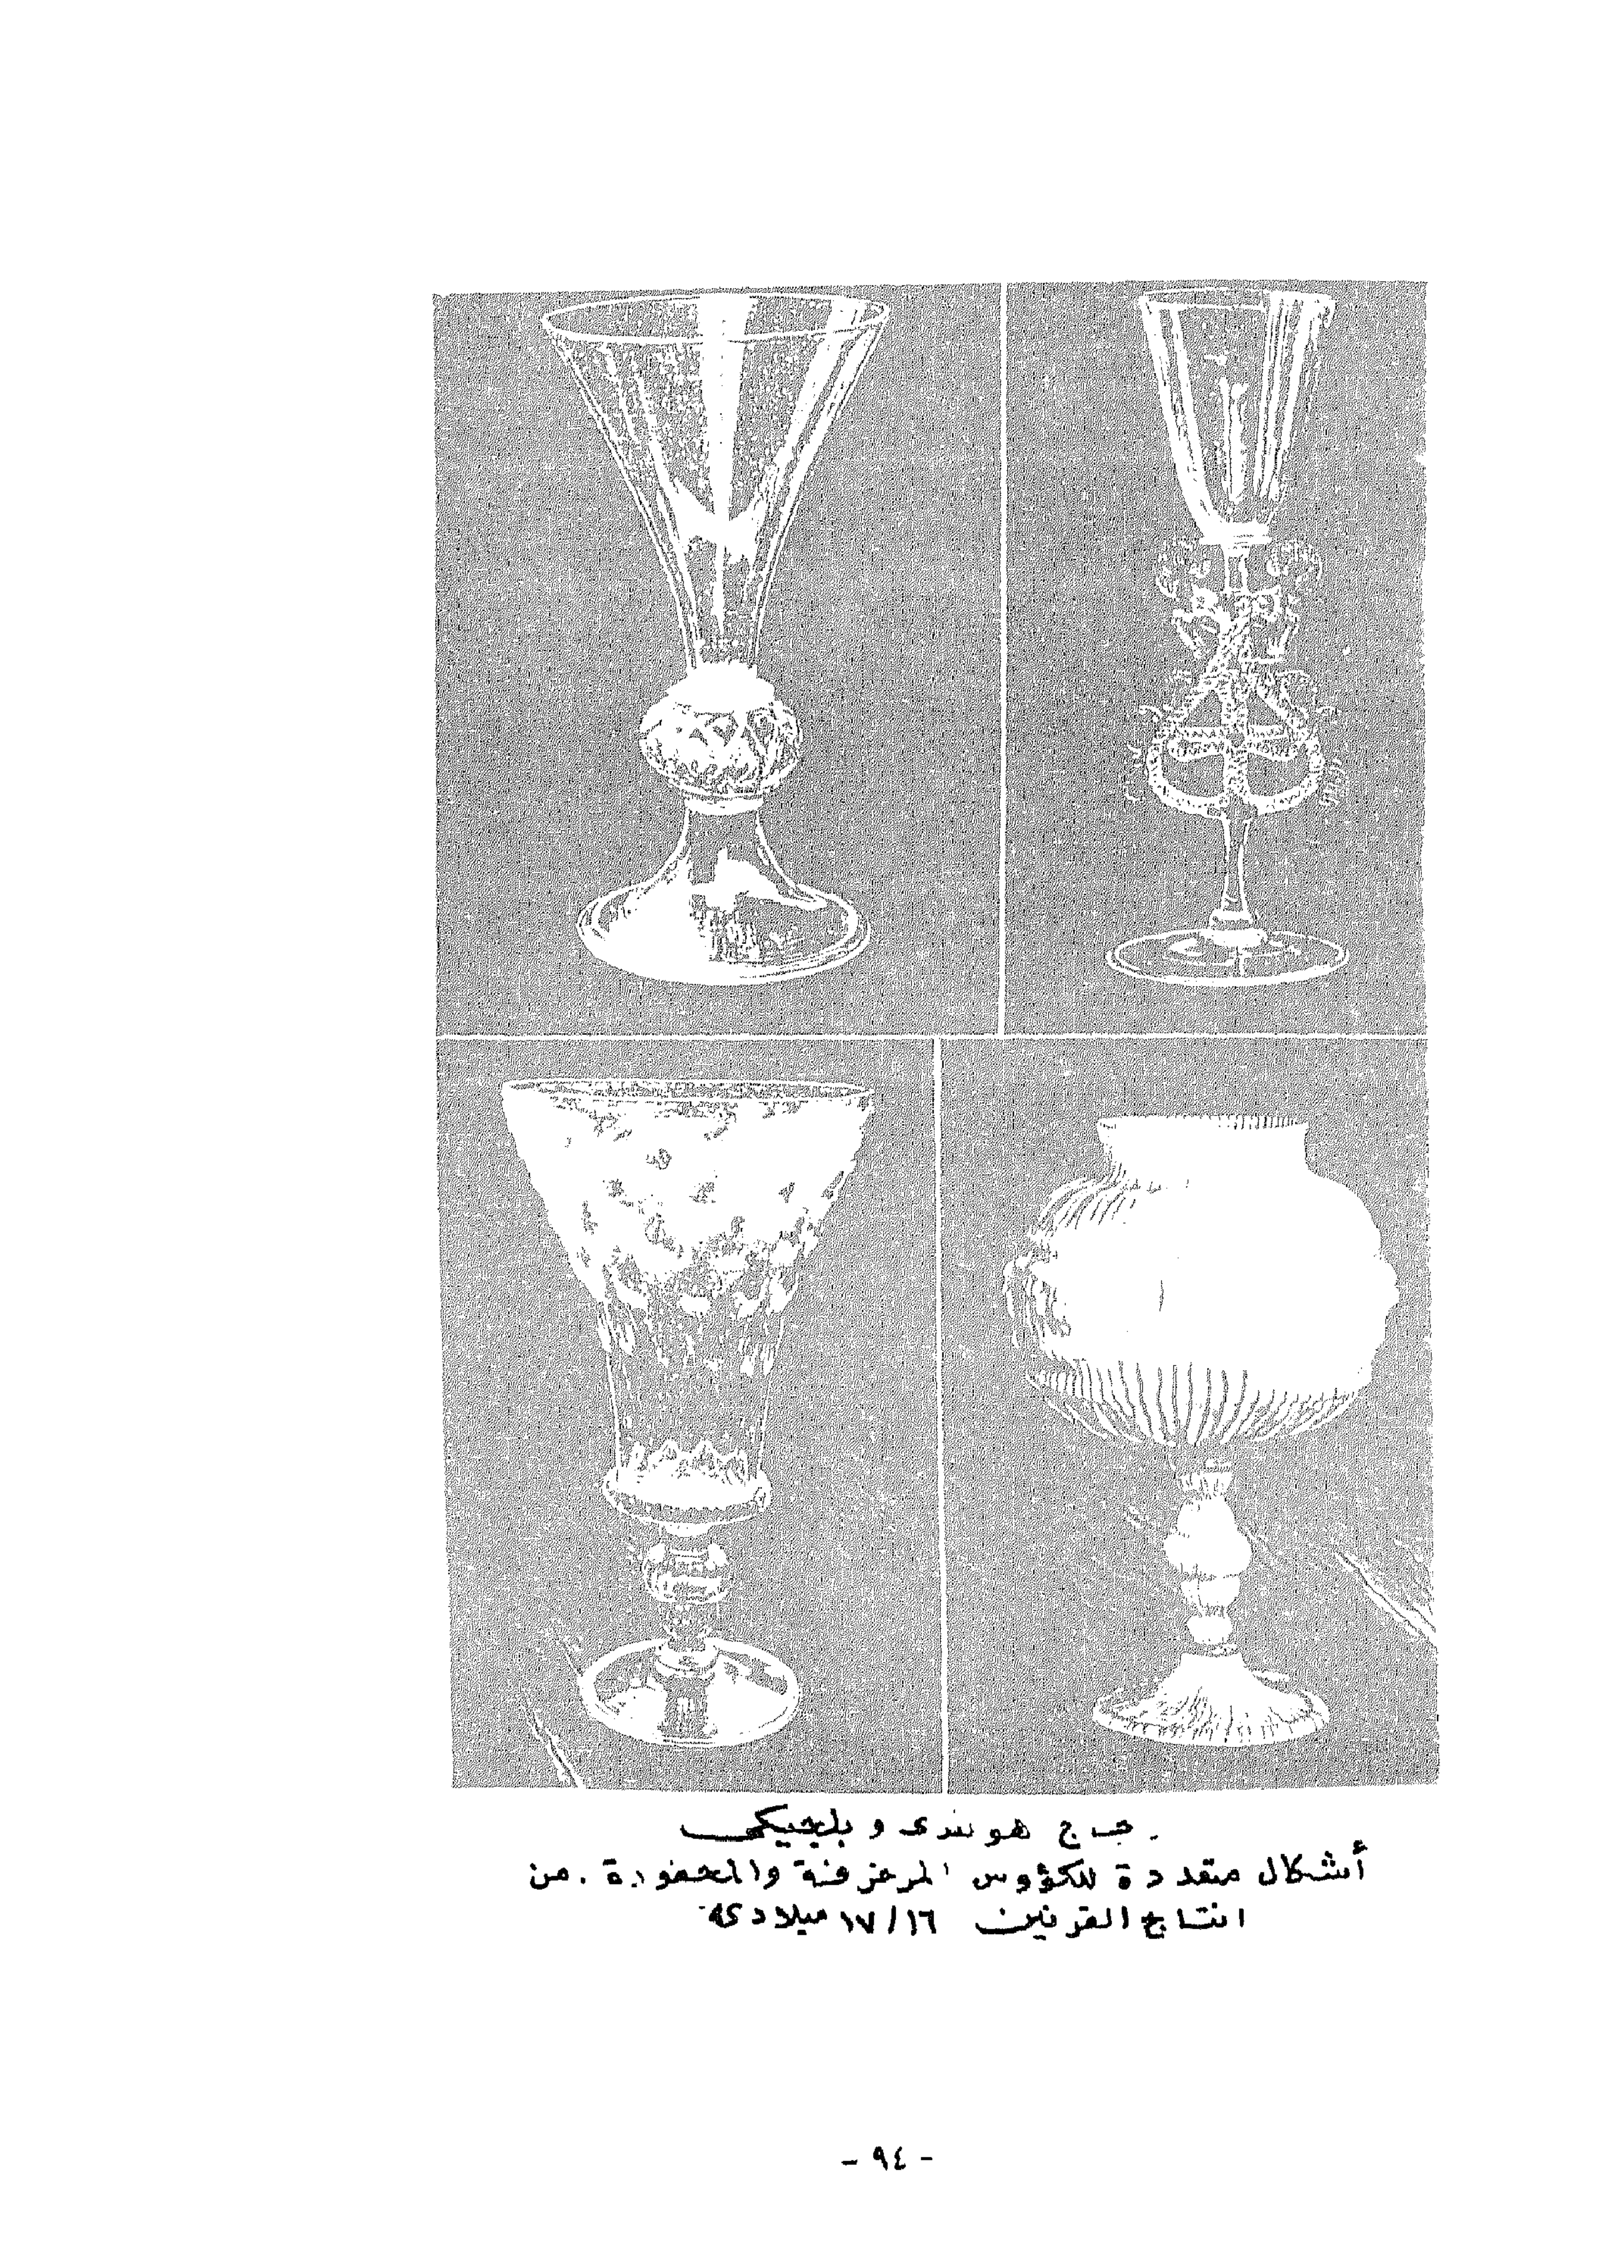 زجاج هولندى و بلجيكى
أشكال متعددة للكؤوس المزخرفة والمحفورة . من
انتاج القرنين ١٦/١٧ ميلادية
- ٩٤ -